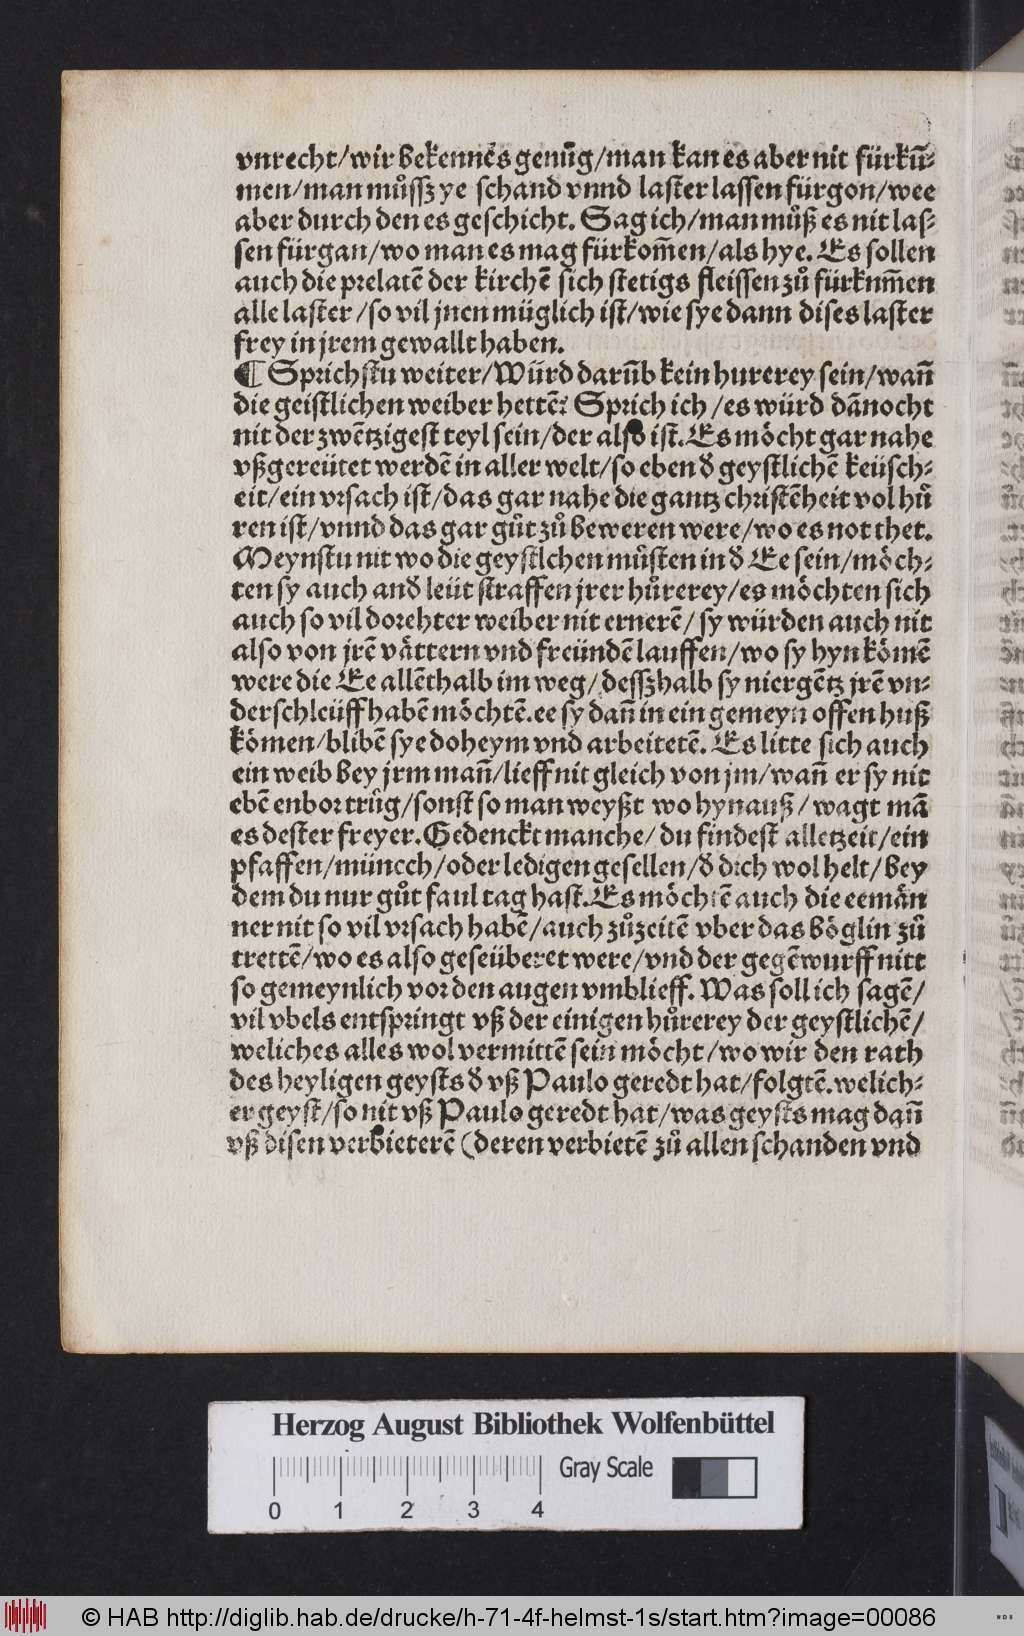 vnrecht/wir bekennēs genūg/man kan es aber nit fürkū-
men/man můſſz ye schand vnnd laster lassen fürgon/wee
aber durch den es geschicht. Sag ich/man můß es nit laſ-
sen fürgan/wo man es mag fürkom̄en/als hye. Es sollen
auch die prelatē der kirchē sich stetigs fleissen zů fürkum̄en
alle laster/so vil jnen müglich ist/wie sye dann dises laster
frey in jrem gewallt haben.
¶ Sprichstu weiter/Würd darūb kein hurerey sein/wan̄
die geistlichen weiber hettē? Sprich ich/es würd dānocht
nit der zwētzigest teyl sein/der also ist. Es möcht gar nahe
vßgereütet werdē in aller welt/so eben đ geystlichē keüsch-
eit/ein vrsach ist/das gar nahe die gantz christēheit vol hů
ren ist/vnnd das gar gůt zů beweren were/wo es not thet.
Meynstu nit wo die geystlchen můsten in đ Ee sein/möch-
ten sy auch anđ leüt straffen jrer hůrerey/es möchten sich
auch so vil dorehter weiber nit ernerē/sy würden auch nit
also von jrē vättern vnd freündē lauffen/wo sy hyn kömē
were die Ee allēthalb im weg/desſzhalb sy niergētz jrē vn-
derschleüff habē möchtē.ee sy dan̄ in ein gemeyn offen huß
kömen/blibē sye doheym vnd arbeitetē. Es litte sich auch
ein weib bey jrm man̄/lieff nit gleich von jm/wan̄ er sy nit
ebē enbor trůg/sonst so man weyßt wo hynauß/wagt mā
es dester freyer. Gedenckt manche/du findest alletzeit/ein
pfaffen/müncch/oder ledigen gesellen/đ dich wol helt/bey
dem du nur gůt faul tag hast. Es möchtē auch die eemän
ner nit so vil vrsach habē/auch zůzeitē vber das böglin zů
trettē/wo es also geseüberet were/vnd der gegēwurff nitt
so gemeynlich vor den augen vmblieff. Was soll ich sagē/
vil vbels entspringt vß der einigen hůrerey der geystlichē/
weliches alles wol vermittē sein möcht/wo wir den rath
des heyligen geysts đ vß Paulo geredt hat/folgtē.welich-
er geyst/so nit vß Paulo geredt hat/was geysts mag dan̄
vß disen verbieterē (deren verbietē zů allen schanden vnd
Herzog August Bibliothek Wolfenbüttel
Gray Scale
0 1 2 3 4
© HAB http://diglib.hab.de/drucke/h-71-4f-helmst-1s/start.htm?image=00086